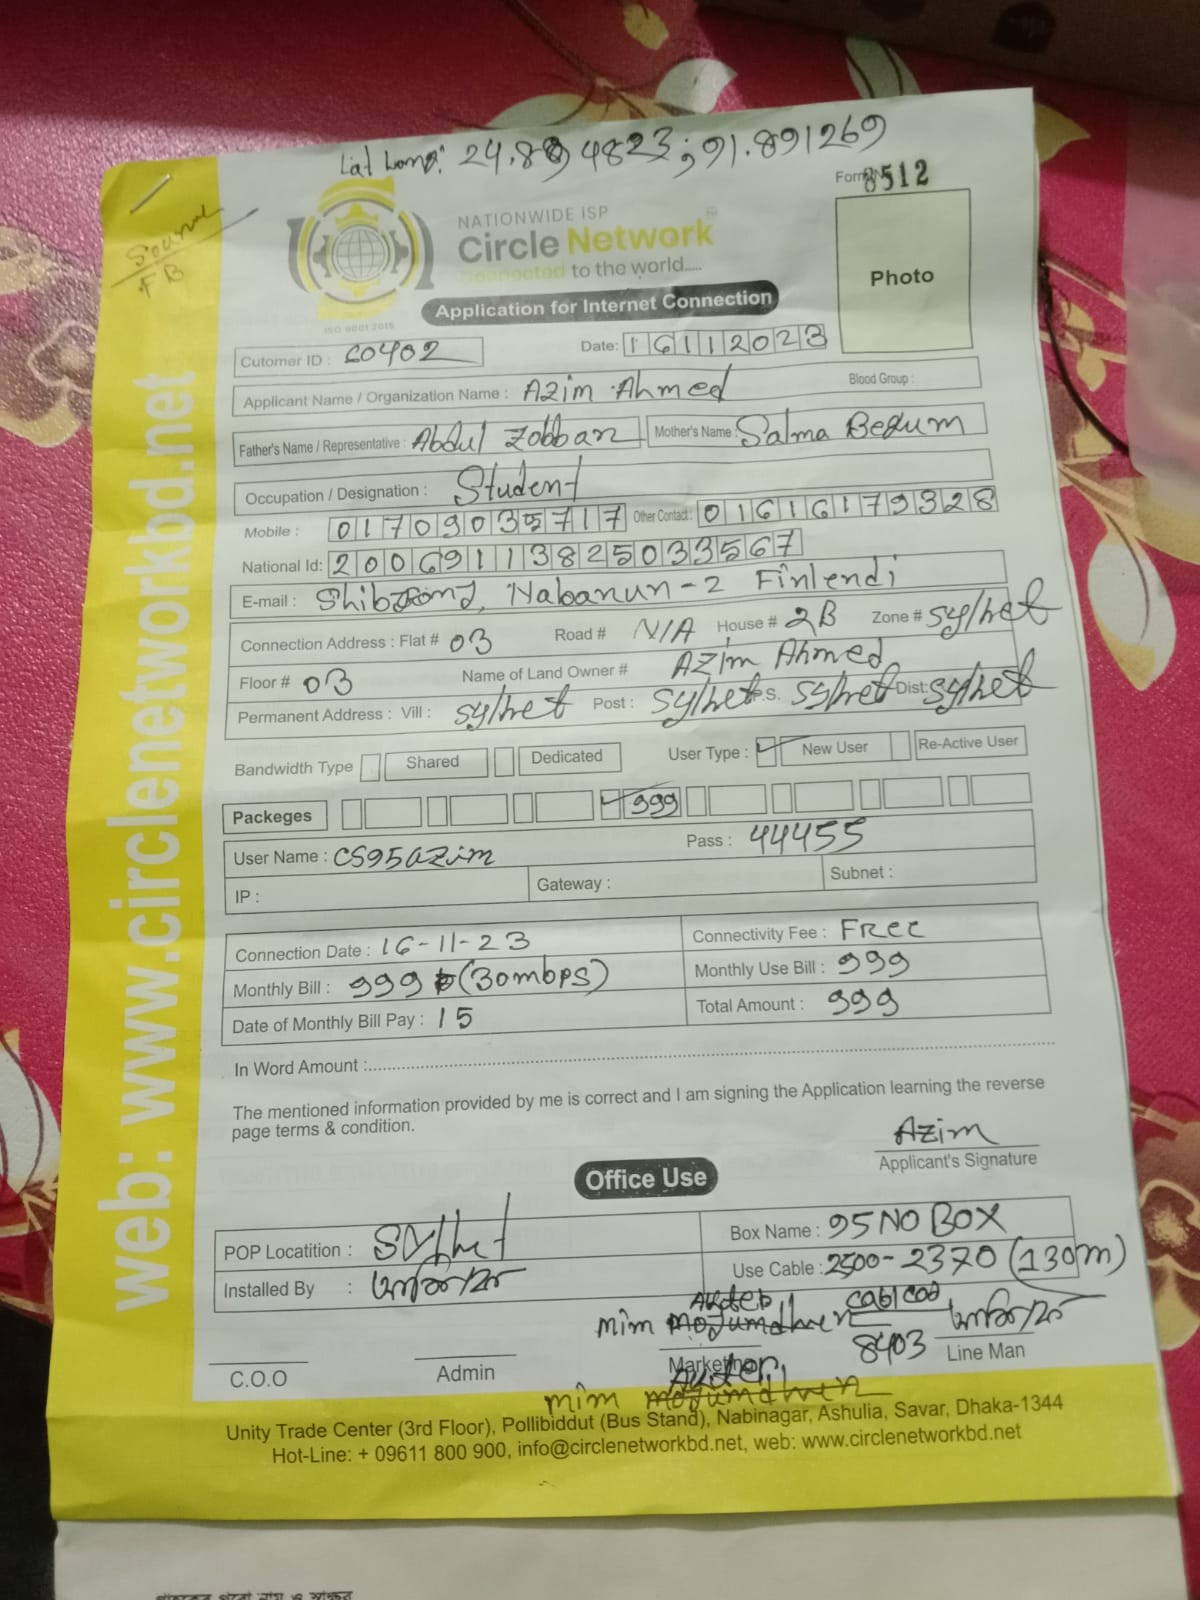 Lat Long: 24.894823; 91.891269
Form No 8512
Sourav
FB
NATIONWIDE ISP
Circle Network
Connected to the world.....
ISO 9001:2015
Photo
Application for Internet Connection
Cutomer ID : C0402 Date: 16112023
Applicant Name / Organization Name : Azim Ahmed Blood Group :
Father's Name / Representative : Abdul Zobban Mother's Name : Salma Begum
Occupation / Designation : Student
Mobile : 01709035717 Other Contact : 01616179328
National Id: 20069113825033567
E-mail : Nabarun-2
Connection Address : Flat # 03 Road # N/A House # 2B Zone # Sylhet
Floor # 03 Name of Land Owner # Azim Ahmed
Permanent Address : Vill : Sylhet Post : Sylhet P.S. Sylhet Dist: Sylhet
Bandwidth Type Shared Dedicated User Type : New User Re-Active User
Packeges 999
User Name : CS95azim Pass : 44455
IP : Gateway : Subnet :
Connection Date : 16-11-23 Connectivity Fee : Free
Monthly Bill : 999 (30mbps) Monthly Use Bill : 999
Date of Monthly Bill Pay : 15 Total Amount : 999
In Word Amount :
The mentioned information provided by me is correct and I am signing the Application learning the reverse
page terms & condition.
Azim
Applicant's Signature
Office Use
POP Locatition : Sylhet Box Name : 95 NO BOX
Installed By : Use Cable : 2500-2370 (130m)
Akter Cable Cod
Mim Mojumdher 8403
C.O.O Admin Marketing Line Man
Akter
Mim Mojumdher
Unity Trade Center (3rd Floor), Pollibiddut (Bus Stand), Nabinagar, Ashulia, Savar, Dhaka-1344
Hot-Line: + 09611 800 900, info@circlenetworkbd.net, web: www.circlenetworkbd.net
web: www.circlenetworkbd.net